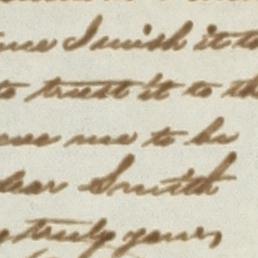 I wish it to
to trust it to th
me to be
dear Smith
truly yours,